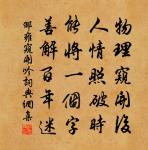 物理窺開後
人情照破時
能將一個字
善解百年迷
邵雍窺開吟詞典網集